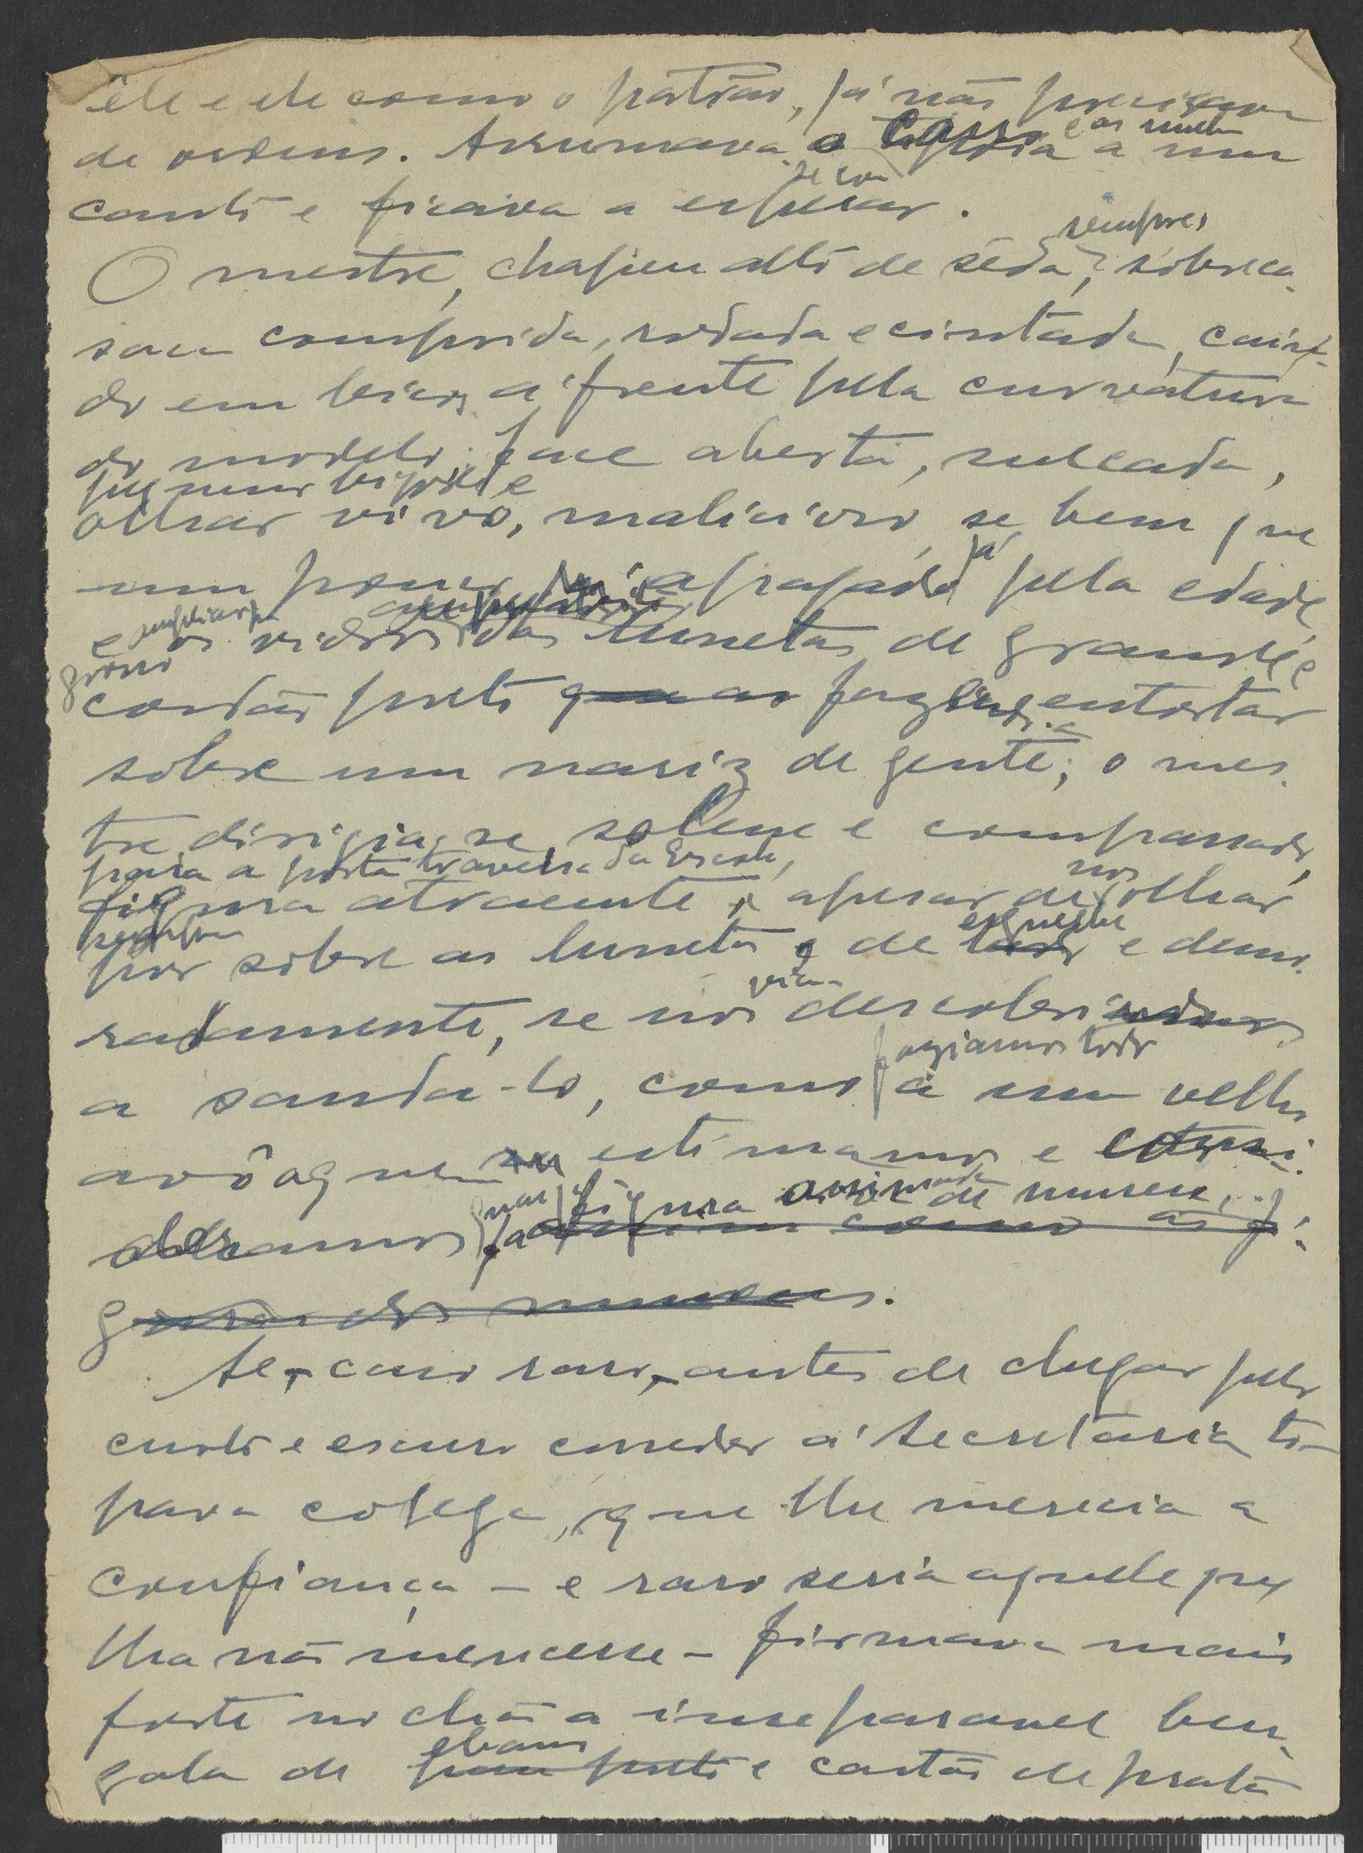 êle e ele como o patrão, já não precisava
de ordens. Arrumava o carro e as mulas a um
canto e ficava a esperar.
sempre,
O mestre, chapeu alto de sêda, sobreca-
saca comprida, rodada e cintada, cain-
do em bicos á frente pela curvatura
do modelo, face aberta, sulcada,
pequeno bigode e
olhar vivo, malicioso, se bem que
um pouco apagado já pela edade,
e os vidros das lunetas de grande e
grosso
cordão preto fazia entortar
sobre um nariz de gente; o mes-
tre dirigia-se, solene e compassado,
para a porta travessa da Escola,
figura atraente, apesar de nos olhar
por sobre as lunetas de esguelhe e demo-
radamente, se nos descobria
faziamos todos
a sauda-lo, como a um velho
avô a quem estimamos e
mas figura animada de museu,
guras dos museus.
Se, caso raro, antes de chegar pelo
curto e escuro corredor á Secretaria to-
pava colega, que lhe merecia a
confiança – e raro seria aquele que
lha não merecesse – firmava mais
forte no chão a inseparavel ben-
ebano
gala de pau preto e castão de prata